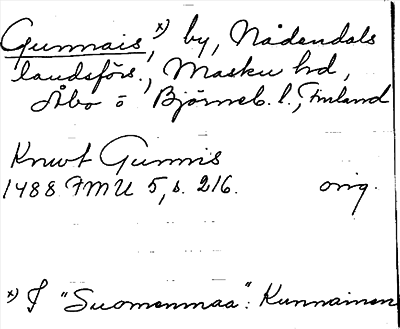 Gunnais, x) by, Nådendals
landsförs., Masku hd,
Åbo o Björneb. l., Finland
Knut Gunnis
1488 FMU 5, s. 216. orig.
x) I "Suomenmaa": Kunnainen